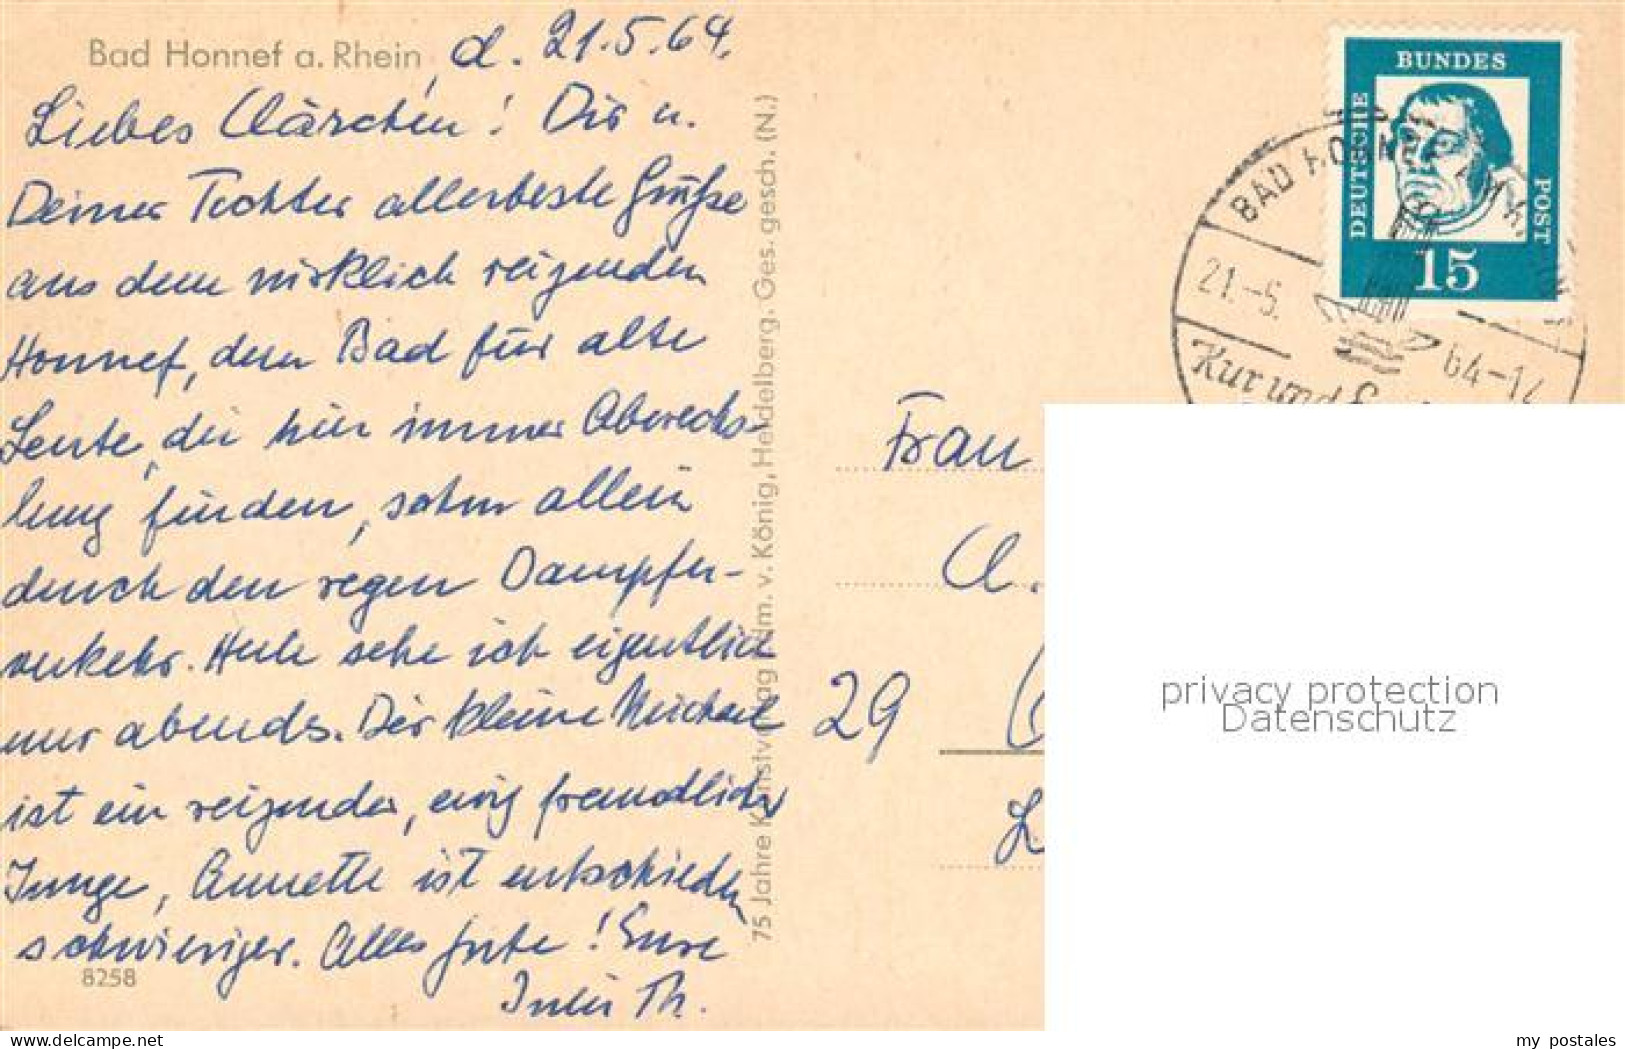 Bad Honnef a. Rhein, d. 21.5.64.
Liebes Clärchen! Dir u.
Deiner Tochter allerbeste Grüße
aus dem wirklich reizenden
Honnef, dem Bad für alte
Leute, die hier immer Abwechs-
lung finden, schon allein
durch den regen Dampfer-
verkehr. Helle sehe ich eigentlich
nur abends. Der kleine Michael
ist ein reizender, ewig freundlicher
Junge, Annette ist entschieden
schwieriger. Alles Gute! Eure
Th.
8258
75 Jahre Kunstverlag Edm. v. König, Heidelberg. Ges. gesch. (N.)
BUNDES
DEUTSCHE
POST
15
BAD HONNEF
21.-5.
64-12
Kur und
Frau
29
privacy protection
Datenschutz
www.delcampe.net
my_postales